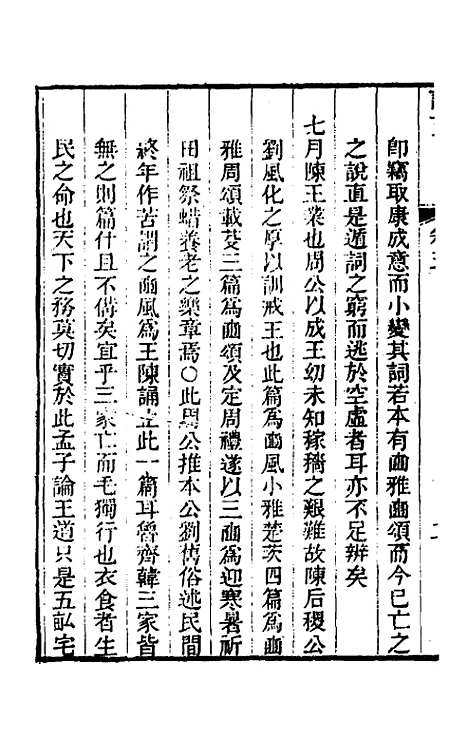 卽竊取康成意而小變其詞若本有豳雅豳頌而今已亡之
之說直是遁詞之窮而逃於空虛者耳亦不足辨矣
七月陳王業也周公以成王幼未知稼穡之艱難故陳后稷公
劉風化之厚以訓戒王也此篇爲豳風小雅楚茨四篇爲豳
雅周頌載芟三篇爲豳頌及定周禮遂以三豳爲迎寒暑祈
田祖祭蜡養老之樂章焉○此周公推本公劉舊俗述民間
終年作苦謂之豳風爲王陳誦止此一篇耳魯齊韓三家皆
無之則篇什且不備矣宜乎三家亡而毛獨行也衣食者生
民之命也天下之務莫切實於此孟子論王道只是五畝宅